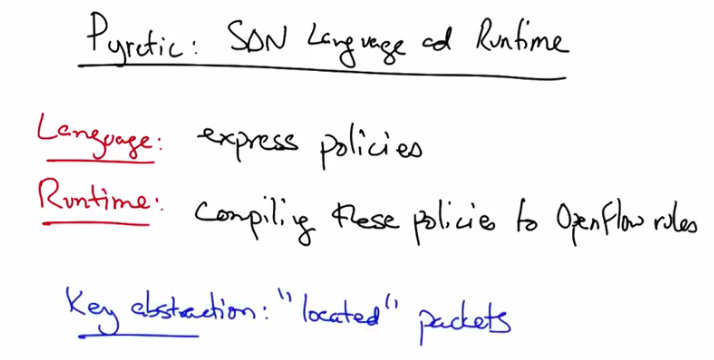 Pyretic: SDN Language ad Runtime
Language: express policies
Runtime: Compiling these policies to OpenFlow rules
Key abstraction: "located" packets